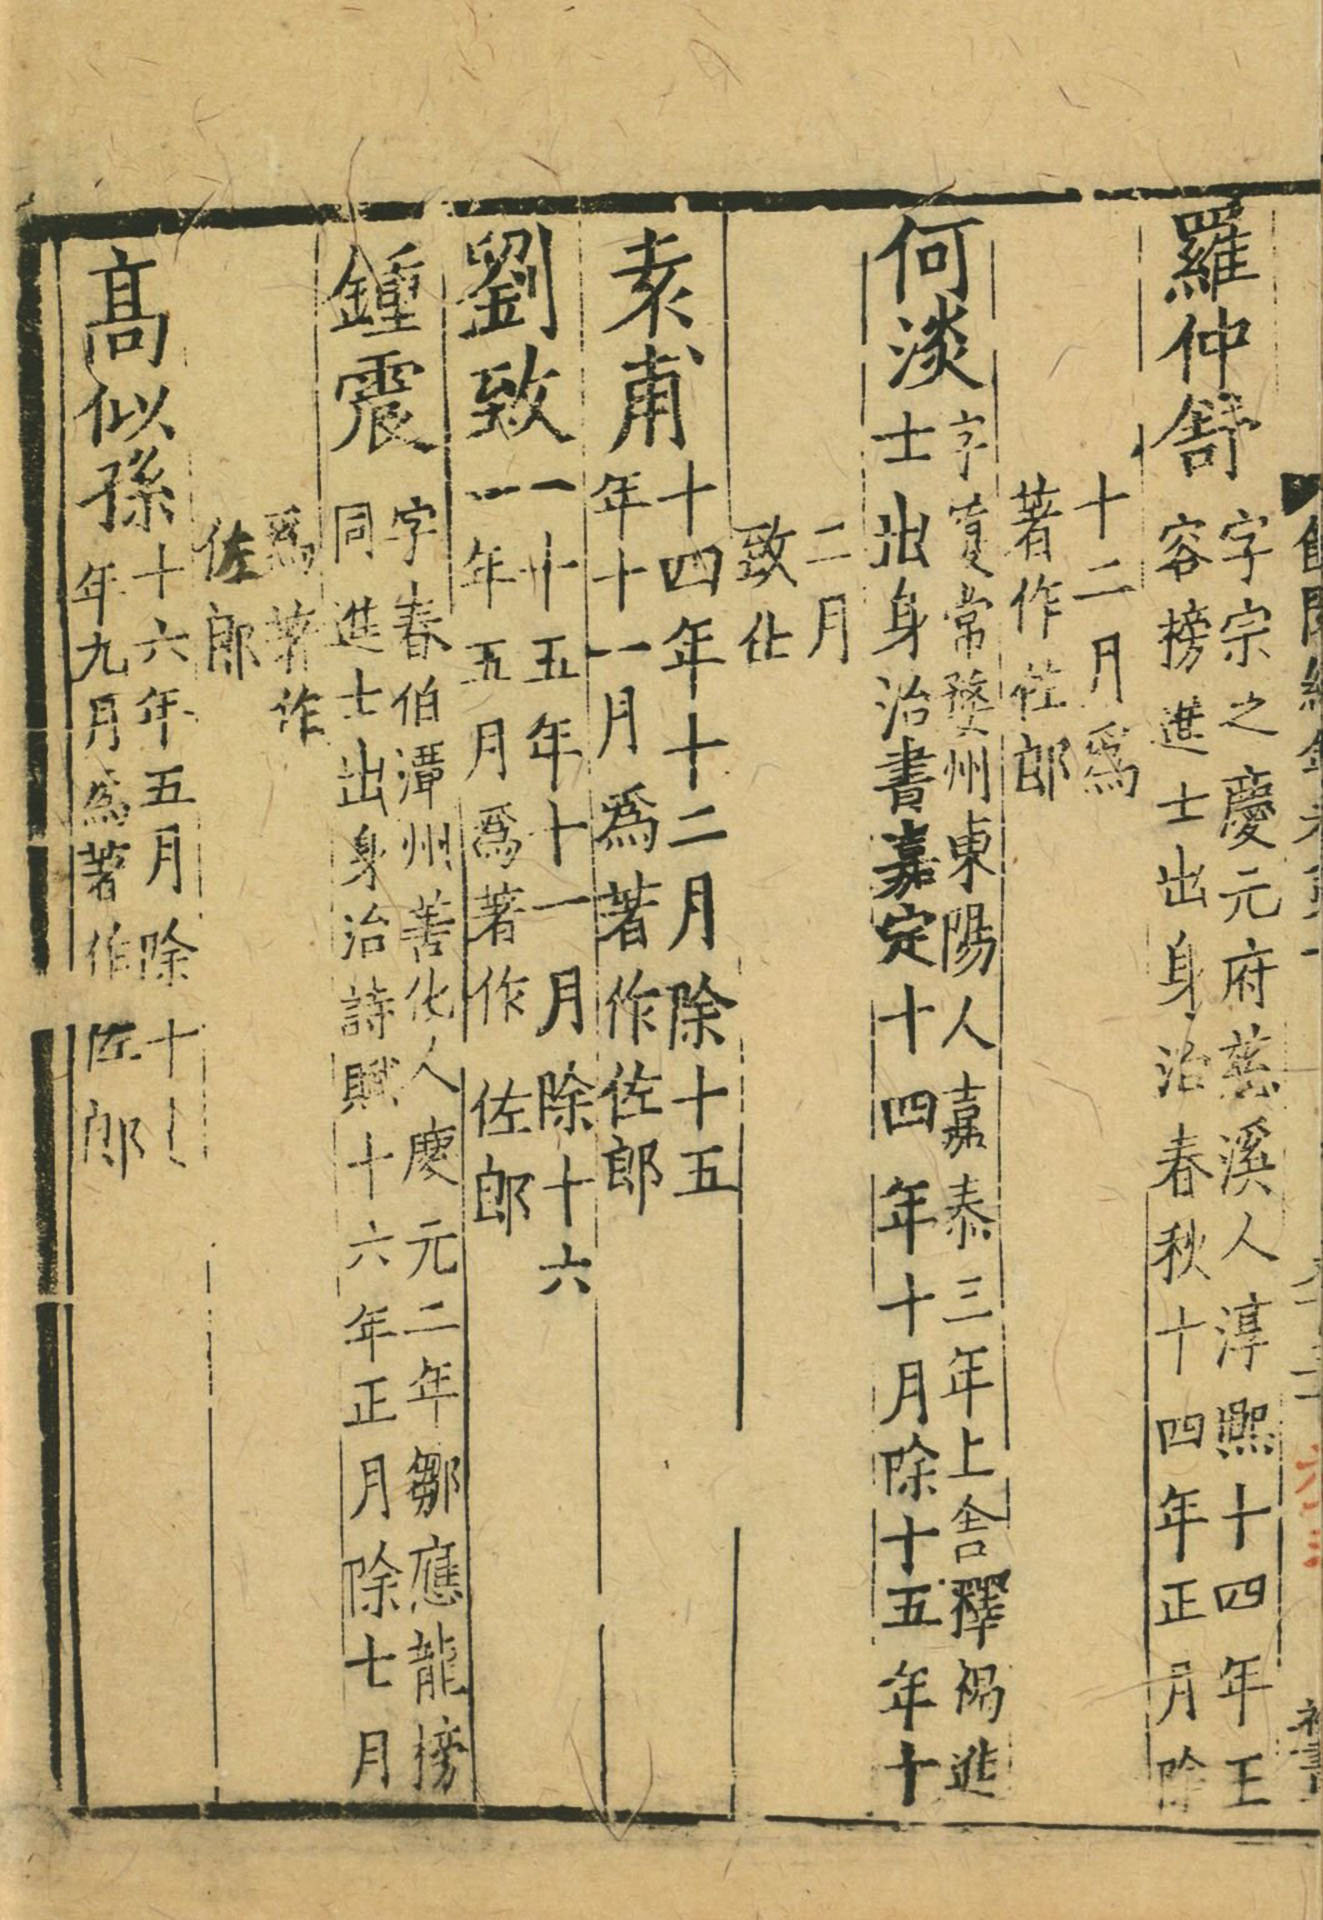 館閣續錄卷第
羅仲舒
字宗之慶元府慈溪人淳熙十四年王
容榜進士出身治春秋十四年正月除
十二月爲
著作佐郎
何淡
字實常婺州東陽人嘉泰三年上舍釋褐進
士出身治書嘉定十四年十月除十五年十
二月
致仕
袁甫
十四年十二月除十五
年十一月爲著作佐郎
劉致一
十五年十一月除十六
一年五月爲著作佐郎
鍾震
字春伯潭州善化人慶元二年鄒應龍榜
同進士出身治詩賦十六年正月除七月
爲著作
佐郎
髙似孫
十六年五月除十
年九月爲著作佐郎